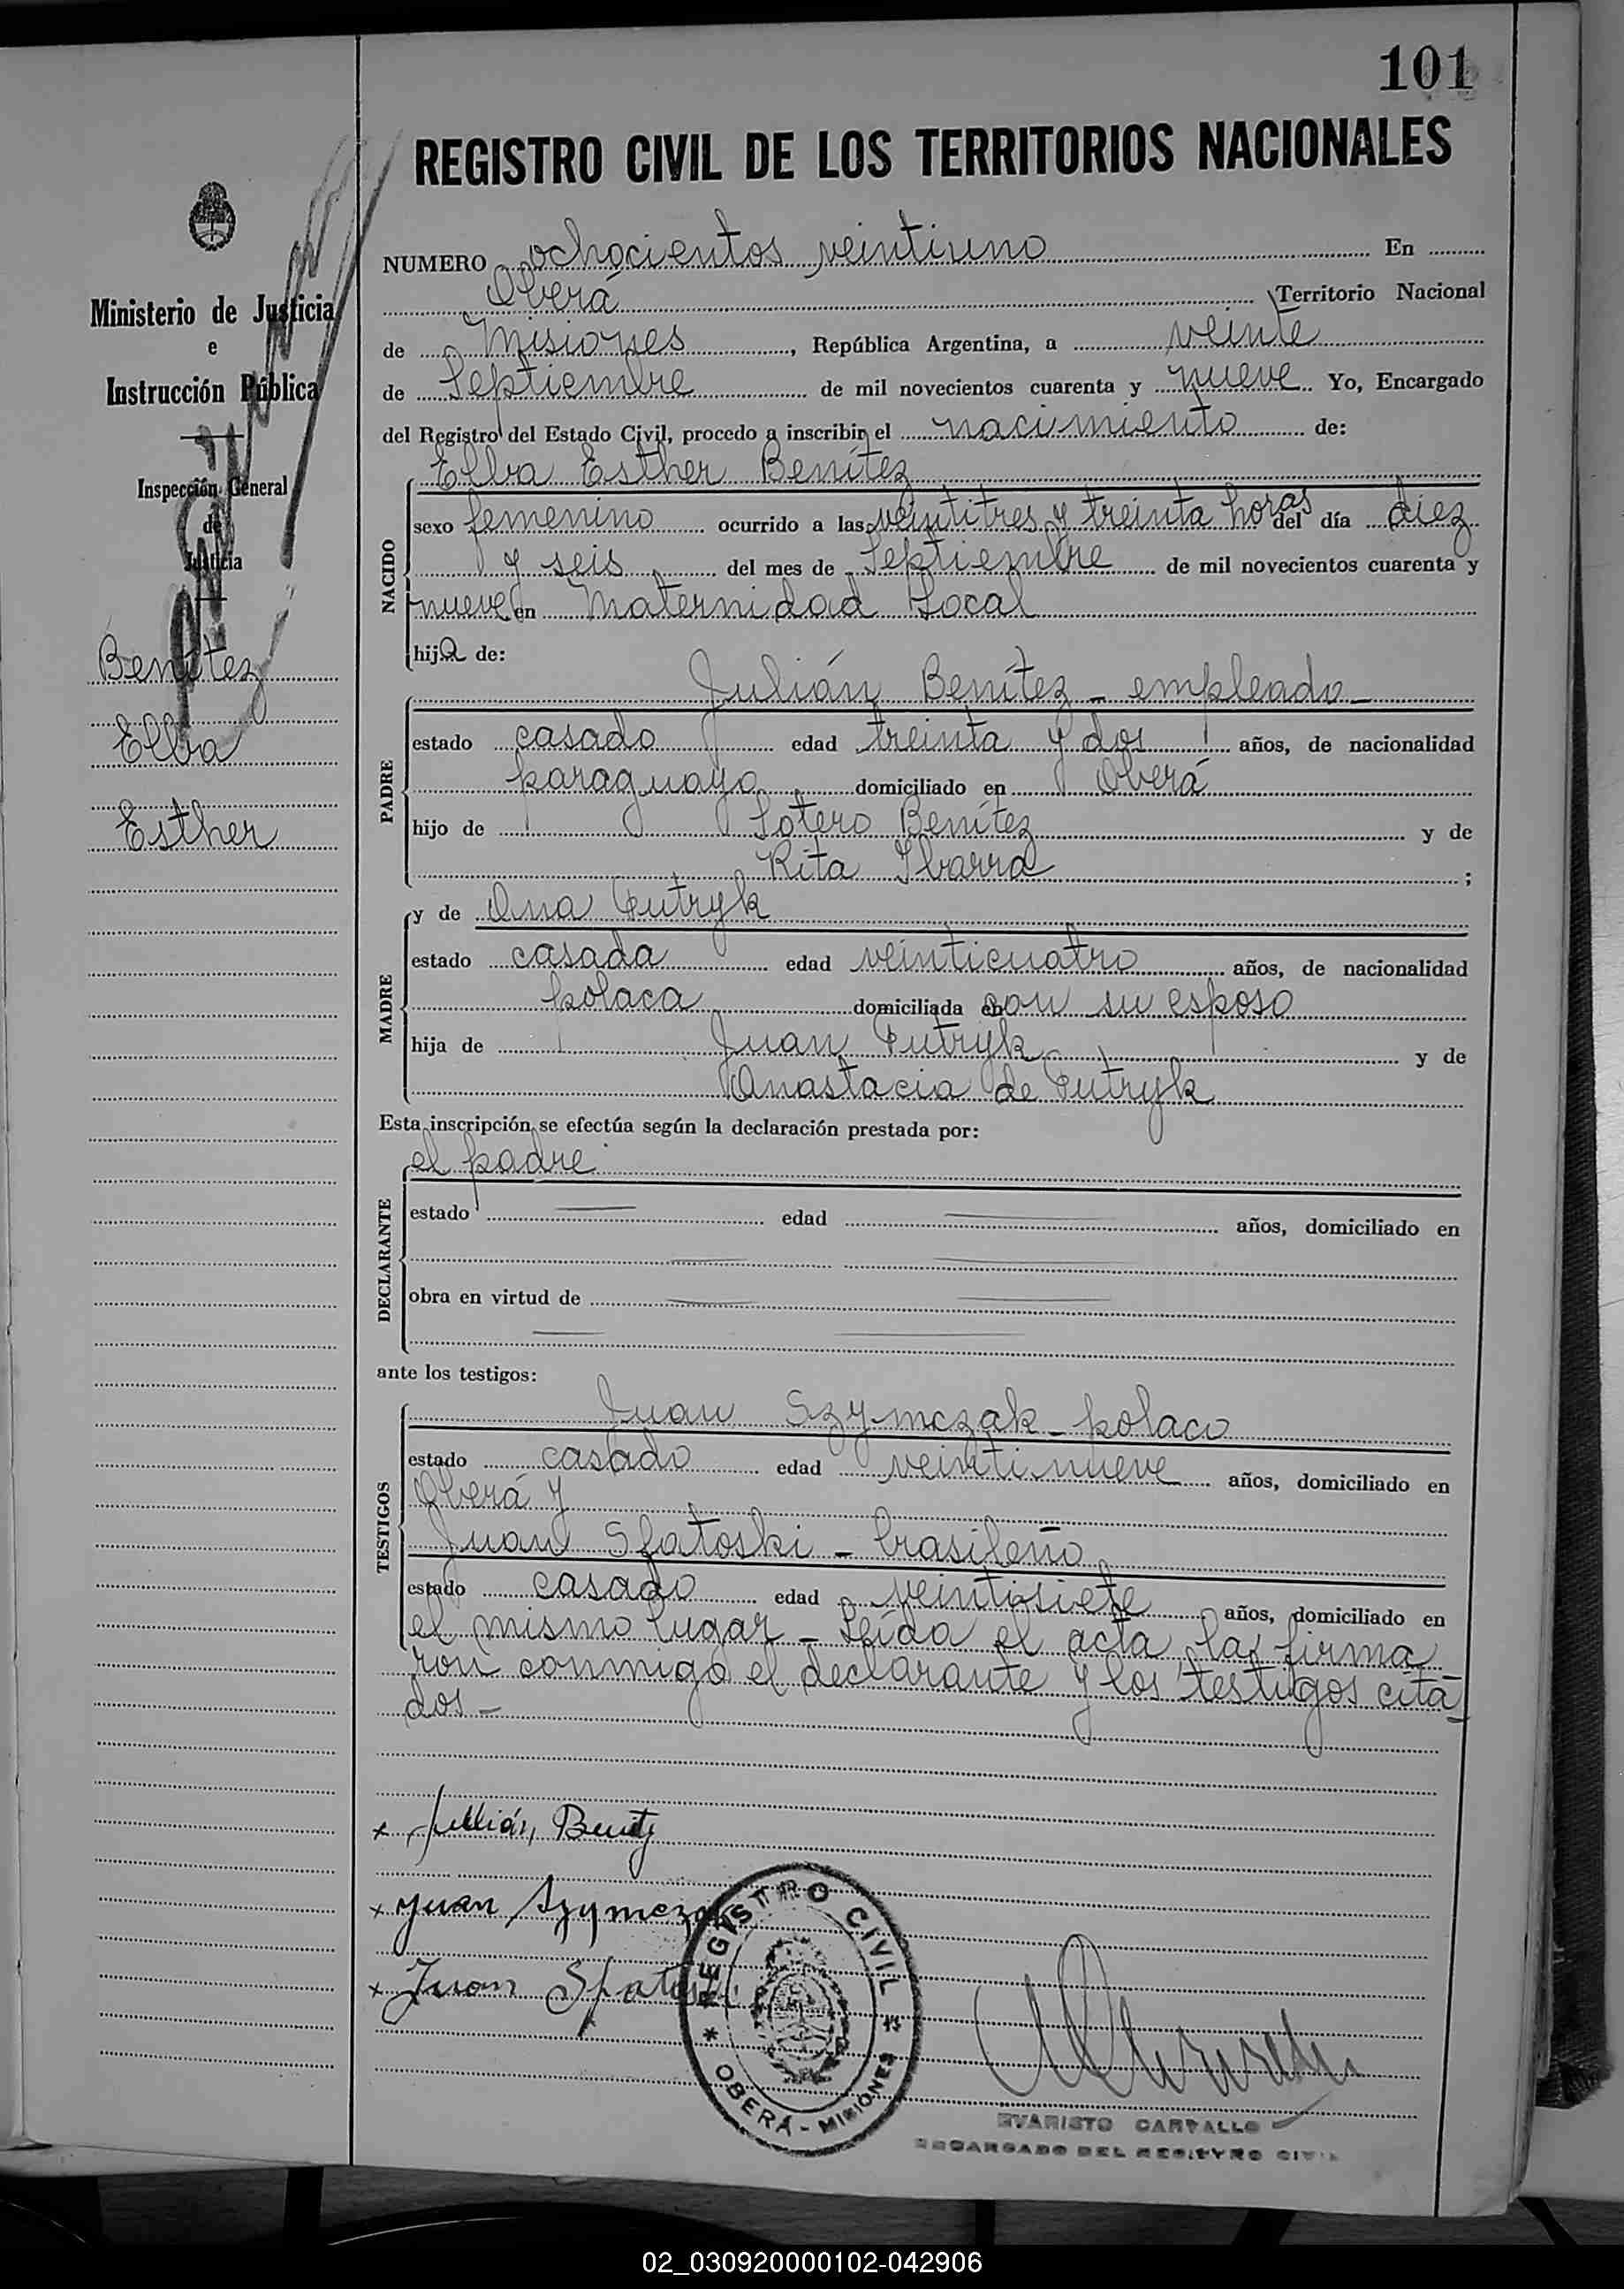 101
REGISTRO CIVIL DE LOS TERRITORIOS NACIONALES
Ministerio de Justicia
e
Instrucción Pública
Inspección General
de
Justicia
Benítez
Elba
Esther
NUMERO ochocientos veintiuno En
Oberá Territorio Nacional
de Misiones, República Argentina, a veinte
de Septiembre de mil novecientos cuarenta y nueve Yo, Encargado
del Registro del Estado Civil, procedo a inscribir el nacimiento de:
Elba Esther Benítez
NACIDO
sexo femenino ocurrido a las veintitres y treinta horas del día diez
y seis del mes de Septiembre de mil novecientos cuarenta y
nueve en Maternidad Local
hija de:
Julián Benítez - empleado -
PADRE
estado casado edad treinta y dos años, de nacionalidad
paraguaya domiciliado en Oberá
hijo de Sotero Benítez y de
Rita Ibarra ;
y de Ana Putryk
MADRE
estado casada edad veinticuatro años, de nacionalidad
polaca domiciliada en con su esposo
hija de Juan Putryk y de
Anastacia de Putryk
Esta inscripción se efectúa según la declaración prestada por:
el padre
DECLARANTE
estado edad años, domiciliado en
obra en virtud de
ante los testigos:
Juan Szymczak - polaco
TESTIGOS
estado casado edad veintinueve años, domiciliado en
Oberá y
Juan Spatoski - brasileño
estado casado edad veintisiete años, domiciliado en
el mismo lugar - Leída el acta la firma
ron conmigo el declarante y los testigos cita
dos -
x Julián Benitz
x Juan Szymczak
x Juan Spatoski
REGISTRO CIVIL
* OBERÁ - MISIONES *
EVARISTO CARVALLO
ENCARGADO DEL REGISTRO CIVIL
02_030920000102-042906